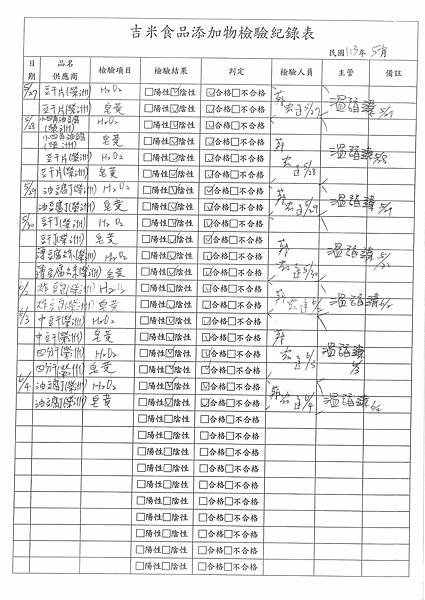 吉米食品添加物檢驗紀錄表
民國113年5月
日期 品名供應商 檢驗項目 檢驗結果 判定 檢驗人員 主管 備註
5/27 豆干片(榮洲) H2O2 □陽性☑陰性 ☑合格□不合格
豆干片(榮洲) 皂黃 □陽性☑陰性 ☑合格□不合格
5/28 小四角油豆腐(榮洲) H2O2 □陽性☑陰性 ☑合格□不合格
小四角油豆腐(榮洲) 皂黃 □陽性☑陰性 ☑合格□不合格
豆干片(榮洲) H2O2 □陽性☑陰性 ☑合格□不合格
豆干片(榮洲) 皂黃 □陽性☑陰性 ☑合格□不合格
5/29 油豆腐丁(榮洲) H2O2 □陽性☑陰性 ☑合格□不合格
油豆腐丁(榮洲) 皂黃 □陽性☑陰性 ☑合格□不合格
5/30 豆干丁(榮洲) H2O2 □陽性☑陰性 ☑合格□不合格
豆干丁(榮洲) 皂黃 □陽性☑陰性 ☑合格□不合格
(榮洲) H2O2 □陽性☑陰性 ☑合格□不合格
(榮洲) 皂黃 □陽性☑陰性 ☑合格□不合格
6/2 炸豆包(榮洲) H2O2 □陽性☑陰性 ☑合格□不合格
炸豆包(榮洲) 皂黃 □陽性☑陰性 ☑合格□不合格
6/3 中豆干(榮洲) H2O2 □陽性☑陰性 ☑合格□不合格
中豆干(榮洲) 皂黃 □陽性☑陰性 ☑合格□不合格
四分干(榮洲) H2O2 □陽性☑陰性 ☑合格□不合格
四分干(榮洲) 皂黃 □陽性☑陰性 ☑合格□不合格
6/4 油豆腐丁(榮洲) H2O2 □陽性☑陰性 ☑合格□不合格
油豆腐丁(榮洲) 皂黃 □陽性☑陰性 ☑合格□不合格
□陽性□陰性 □合格□不合格
□陽性□陰性 □合格□不合格
□陽性□陰性 □合格□不合格
□陽性□陰性 □合格□不合格
□陽性□陰性 □合格□不合格
□陽性□陰性 □合格□不合格
□陽性□陰性 □合格□不合格
□陽性□陰性 □合格□不合格
□陽性□陰性 □合格□不合格
□陽性□陰性 □合格□不合格